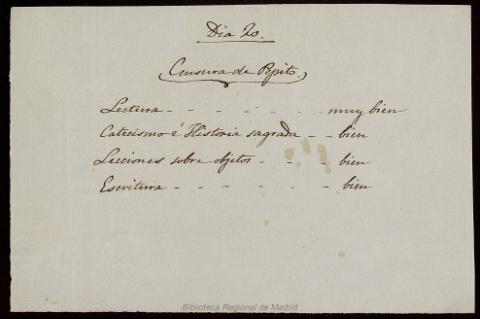 Dia 20.
Censura de Pepito.
Lectura - - - - - - muy bien
Catecismo é Historia sagrada - - bien
Lecciones sobre objetos - - - bien
Escritura - - - - - - bien
Biblioteca Regional de Madrid